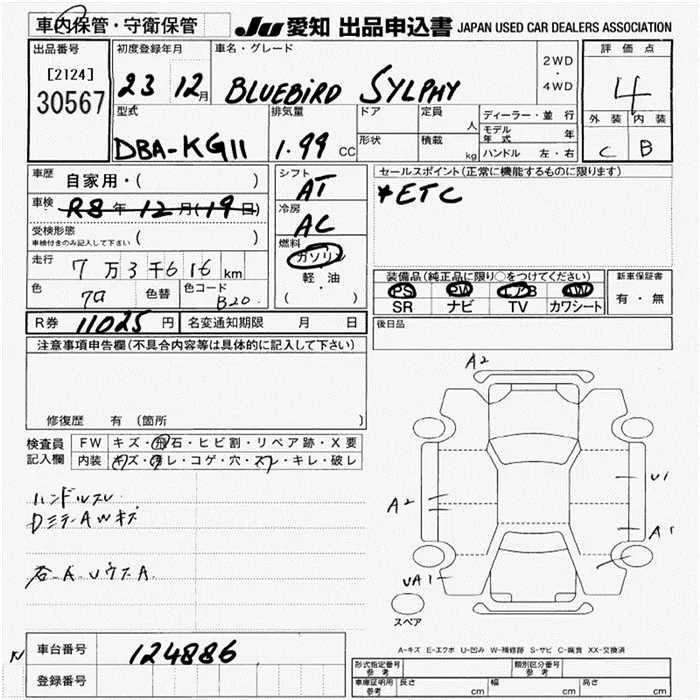 車内保管・守衛保管
JU 愛知 出品申込書 JAPAN USED CAR DEALERS ASSOCIATION
出品番号
[2124]
30567
初度登録年月
23 12月
車名・グレード
BLUEBIRD SYLPHY
2WD
・
4WD
評価点
4
外装 内装
C B
型式
DBA-KG11
排気量
1.99 CC
ドア
形状
定員
人
積載
kg
ディーラー・並行
モデル年式 年
ハンドル 左・右
車歴 自家用・( )
車検 R8年12月(19日)
受検形態
車検付きのみ記入して下さい ( )
走行 7万3千616km
色 色替 色コード
B20
シフト
AT
冷房
AC
燃料
ガソリン
・
軽・油
( )
セールスポイント(正常に機能するものに限ります)
*ETC
装備品(純正品に限り○をつけてください)
PS PW エアB AW
SR ナビ TV カワシート
新車保証書
有・無
R券 11025円 名変通知期限 月 日
後日品
注意事項申告欄(不具合内容等は具体的に記入して下さい)
修復歴 有 (箇所 )
検査員
記入欄
FW キズ・飛石・ヒビ割・リペア跡・X要
内装 キズ・汚レ・コゲ・穴・スレ・キレ・破レ
ハンドルスレ
AWキズ
A2
A2
U1
A1
UA1
スペア
A-キズ E-エクボ U-凹み W-補修跡 S-サビ C-腐食 XX-交換済
車台番号 124886
登録番号
N
形式指定番号
参考
類別区分番号
参考
車庫証明用
参考
長さ cm 幅 cm 高さ cm